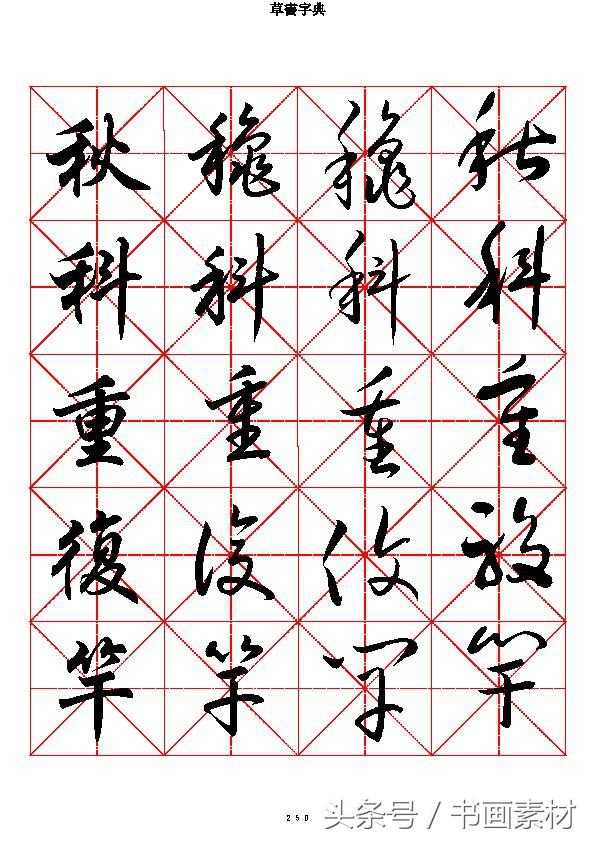 草書字典
秋 穐 穐 秋
科 科 科 科
重 重 重 重
復 復 復 復
竿 竿 竿 竿
250
头条号 / 书画素材